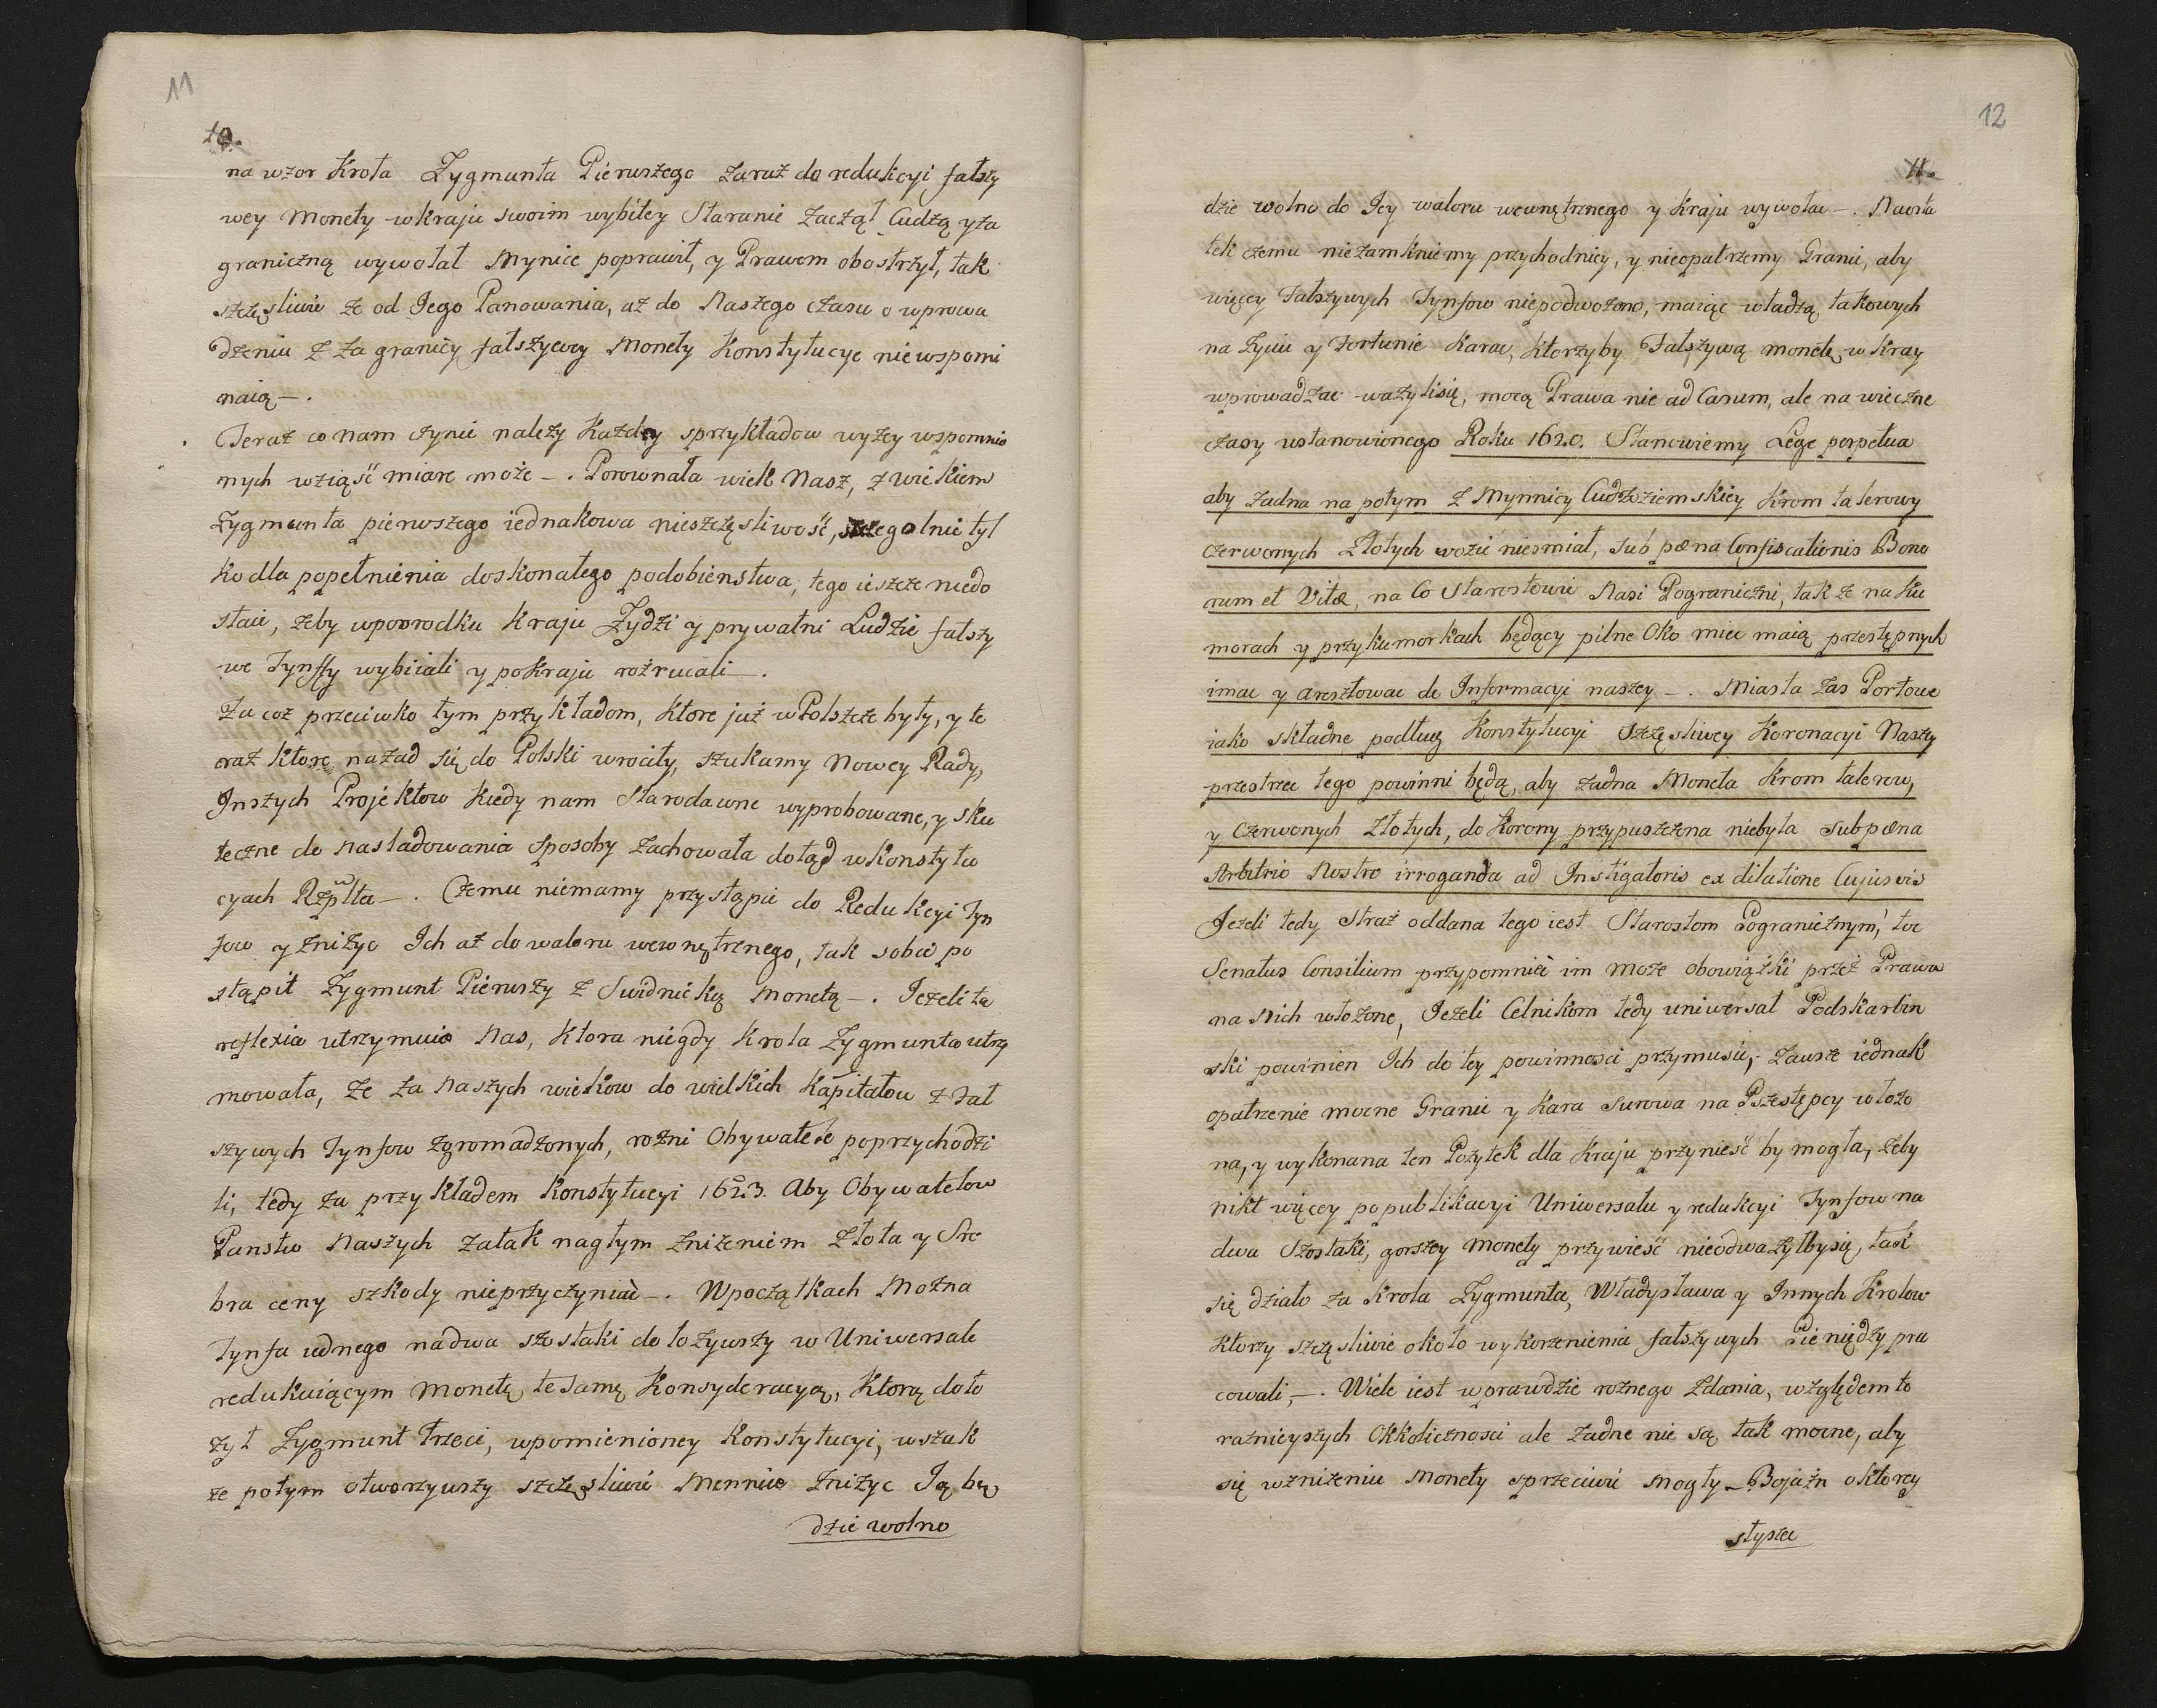 11
10.
na wzor Krola Zygmunta Pierwszego zaraz do redukcyi fałszy
wey Monety w kraju swoim wybitey Staranie zaczął Cudzą y za
graniczną wywołał Mynice poprawił, y Prawem obostrzył, tak
szczęsliwie ze od Jego Panowania, aż do Naszego czasu o wprowa
dzeniu z za granicy fałszywey Monety Konstytucye niewspomi
naią—.
Teraz co nam czynić nalezy Kazdey sprzykładow wyzey wspomnio
nych wziąść miare może—. Porownała wiek Nasz, z wiekiem
Zygmunta pierwszego iednakowa nieszczęsliwość, szczegolnie tyl
ko dla popełnienia doskonałego podobieństwa, tego ieszcze niedo
staie, zeby wposrodku Kraju Zydzi y prywatni Ludzie fałszy
we Tynffy wybiiali y po Kraju rozrucali—.
Za coz przeciwko tym przykładom, Ktore już w Polszcze były, y te
eraz ktore nazad się do Polski wrociły, szukamy Nowey Rady,
Inszych Projektow kiedy nam Starodawne wyprobowane, y sku
teczne do nasladowania sposoby zachowała dotąd w Konstytu
cyach Rzplta—. Czemu niemamy przystąpić do Redukcyi Tyn
fow y znizyc Ich aż do waloru wewnętrznego, tak sobie po
stąpił Zygmunt Pierwszy z Swidnicką Monetą—. Jezeli ta
reflexia utrzymuie Nas, Ktora niegdy Krola Zygmunta utrzy
mowała, ze za Naszych wiekow do wielkich Kapitałow z Fał
szywych Tynfow zgromadzonych, rozni Obywatele poprzychodzi
li, tedy za przykładem Konstytucyi 1623. Aby Obywatelow
Panstw Naszych za tak nagłym znizeniem Złota y Sre
bra ceny szkody nieprzyczyniać—. W początkach Mozna
Tynfa iednego na dwa szostaki dołozywszy w Uniwersale
redukuiącym Monetę te samę Konsyderacyą, Ktorą doło
zył Zygmunt Trzeci, wpomienioney Konstytucyi, wszak
ze potym otworzywszy szczęsliwie Mennice znizyc Ją bę
dzie wolno
12
11.
dzie wolno do Jey waloru wewnętrznego y Kraju wywołac—. Naosta
tek czemu niezamkniemy przychodniey, y nieopatrzemy Granic, aby
więcey Fałszywych Tynfow niepodwozono, maiąc władzą takowych
na Zyciu y Fortunie Karac, Ktorzyby Fałszywą monetę w Kray
wprowadzac wazylisię, mocą Prawa nie ad Casum, ale na wieczne
czasy ustanowionego Roku 1620. Stanowiemy Lege perpetua
aby zadna na potym z Mynnicy Cudzoziemskiey Krom talerowy
czerwonych Złotych wozić niesmiał, sub pæna Confiscationis Bono
rum et Vitæ, na Co Starostowie Nasi Pograniczni, tak ze na Ku
morach y przykumorkach będący pilne Oko miec maią przestępnych
imac y aresztowac de Informacyi naszey—. Miasta zas Portowe
iako składne podług Konstytucyi szczęsliwey Koronacyi Naszey
przestrzec tego powinni będą, aby zadna Moneta Krom talerow,
y Czerwonych Złotych, do Korony przypuszczona niebyła sub pæna
Arbitrio Nostro irroganda ad Instigatoris ex dilatione Cujusvis
Jezeli tedy straż oddana tego iest Starostom Pogranicznym, toc
Senatus Consilium przypomnieć im może obowiązki przez Prawa
na Nich włożone, Jezeli Celnikom tedy uniwersał Podskarbin
ski powinien Ich do tey powinności przymusić, zawsze iednak
opatrzenie mocne Granic y Kara surowa na Przestępcy włozo
na, y wykonana ten Pozytek dla Kraju przynieść by mogła, zeby
nikt więcey po publikacyi Uniwersału y redukcyi Tynfow na
dwa Szostaki, gorszey Monety przywieść nieodwazyłbysię, tak
się działo za Krola Zygmunta, Władysława y Innych Krolow
Ktorzy szczęsliwie około wykorzenienia fałszywych Pieniędzy pra
cowali,—. Wiele iest wprawdzie roznego Zdania, względem te
raznieyszych Okkolicznosci ale zadne nie są tak mocne, aby
się wznizeniu Monety sprzeciwić Mogły—Bojaźn o ktorey
słyszec